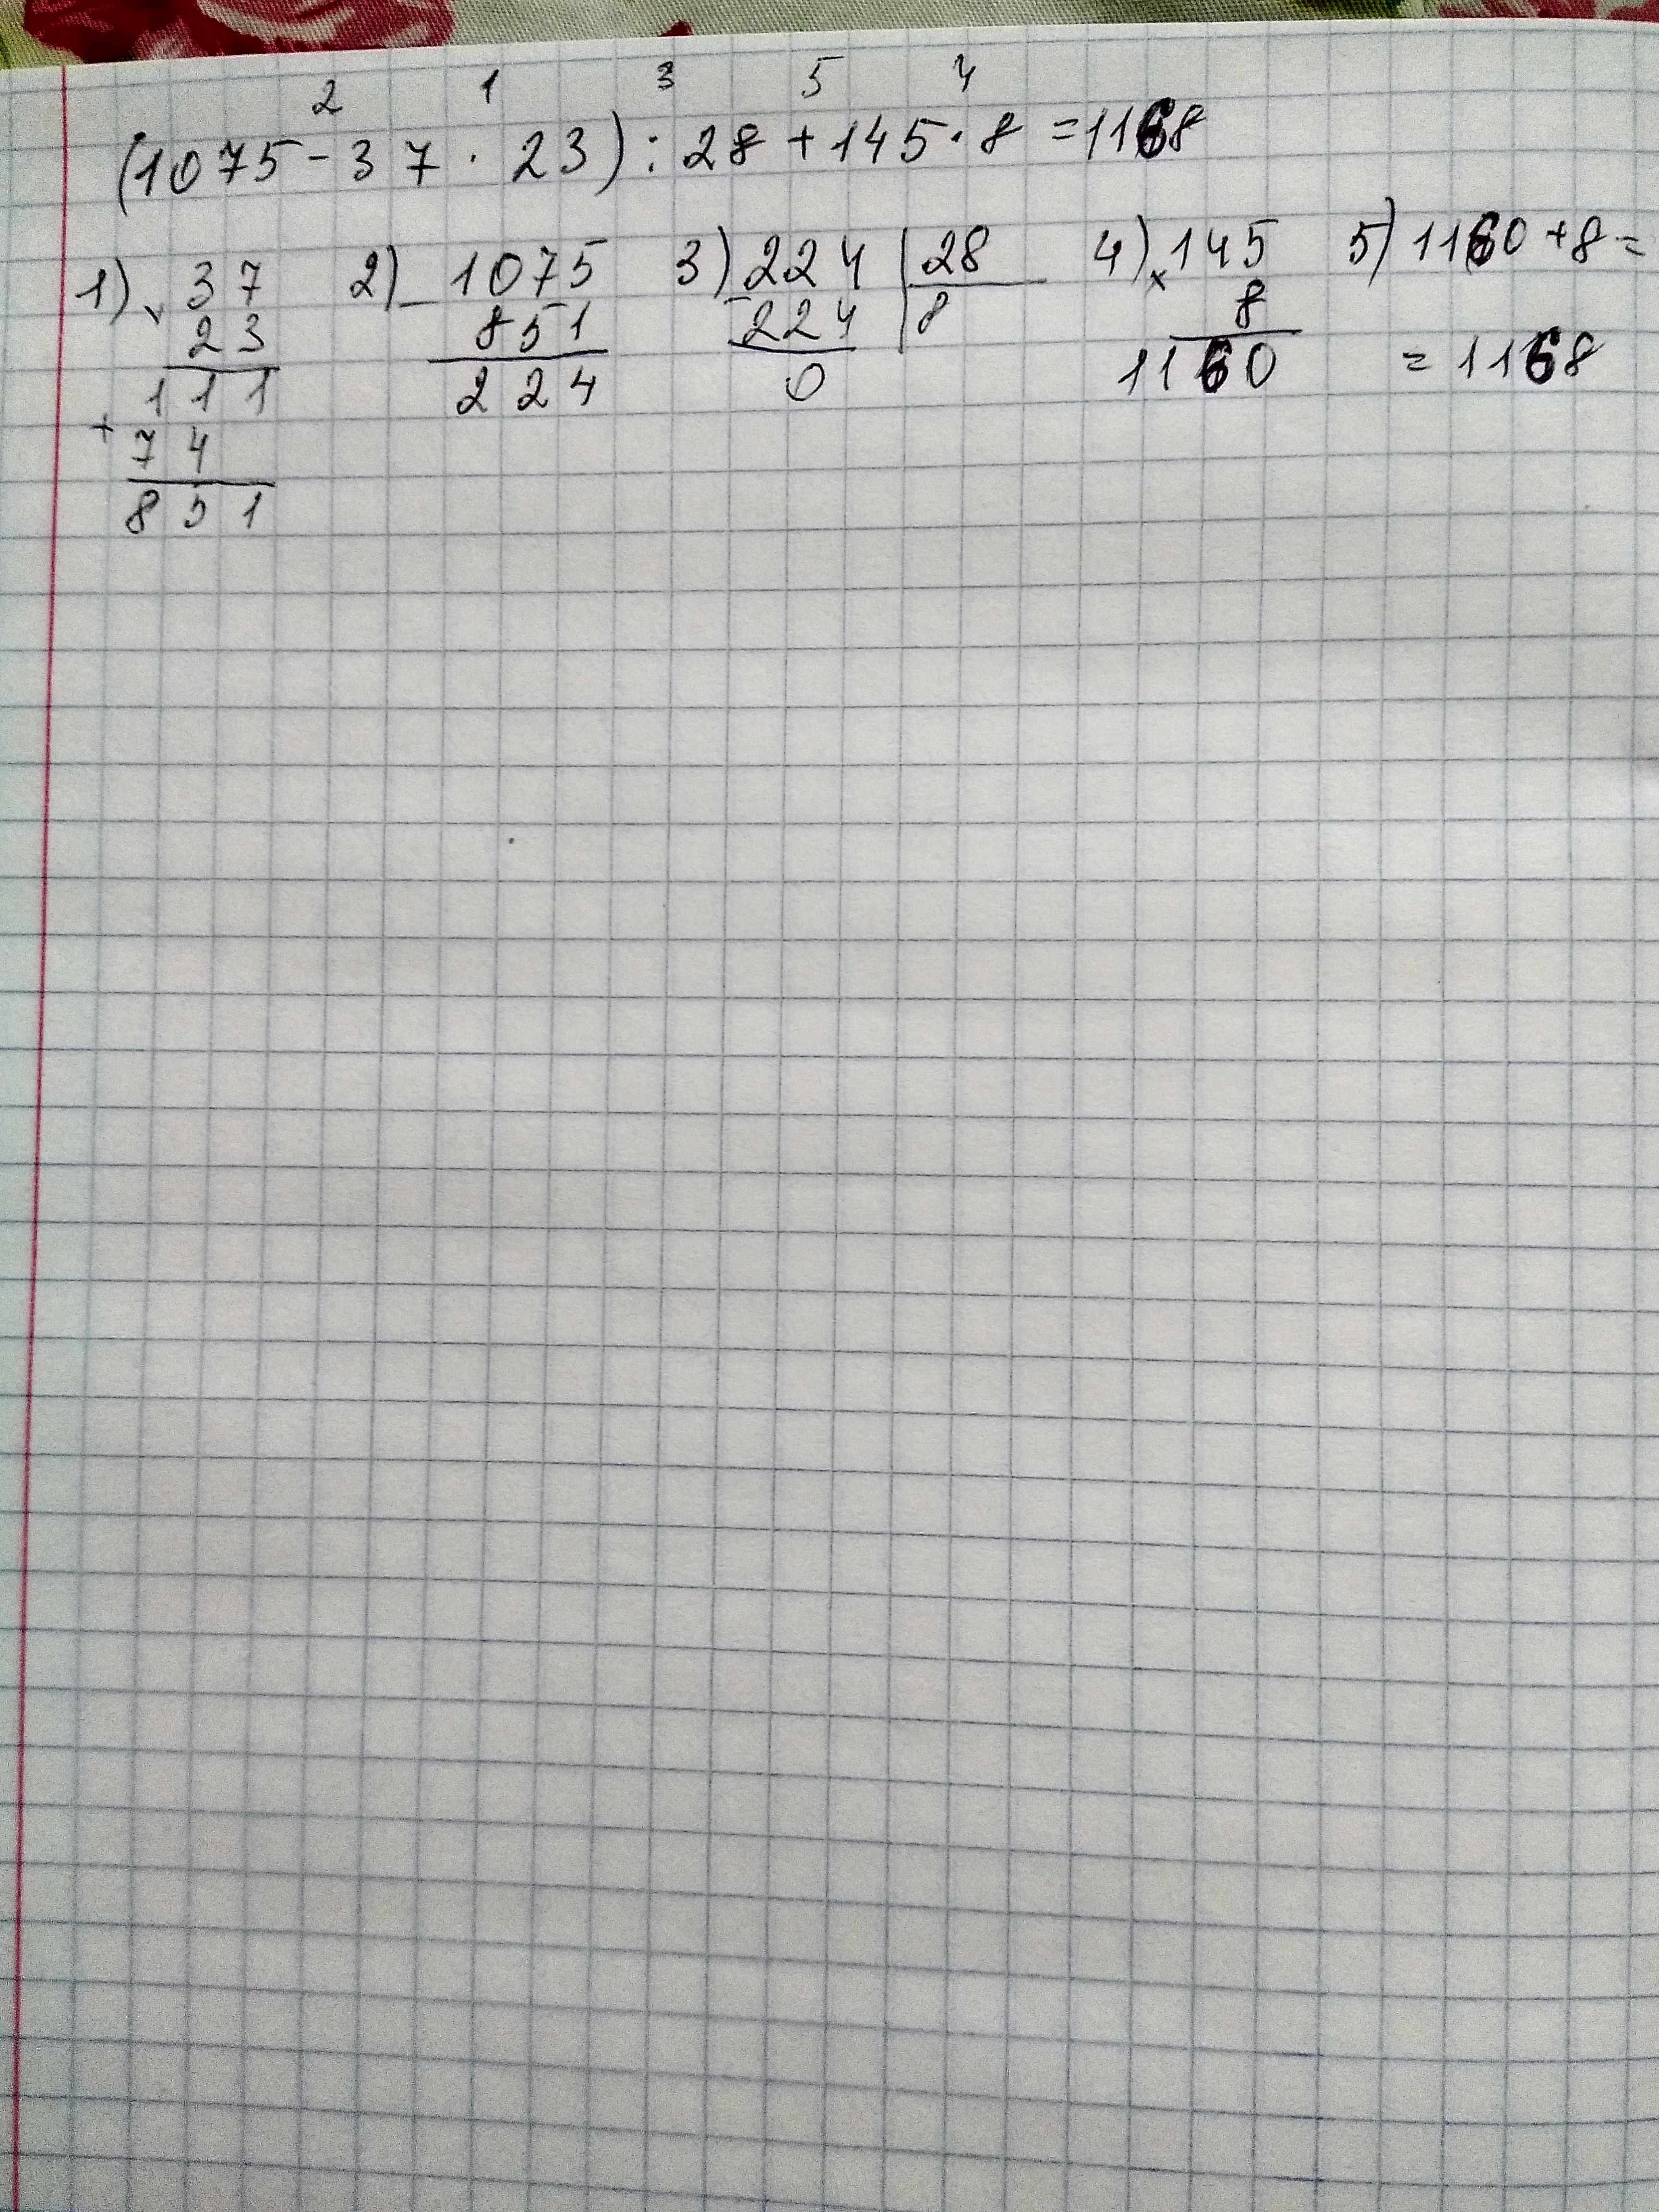 2 1 3 5 4
(1075 - 37 · 23) : 28 + 145 · 8 = 1168
1) 37 2) - 1075 3) 224 | 28 4) × 145 5) 1160 + 8 =
23 851 - 224 8 8
111 224 0 1160 = 1168
+ 74
851